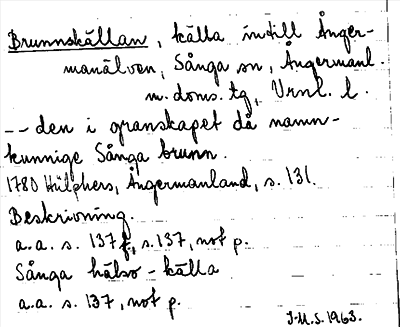 Brunnskällan, källa intill Ånger-
manälven, Sånga sn, Ångermanl.
m. doms. tg, Vrnl. l.
-- den i granskapet då namn-
kunnige Sånga brunn.
1780 Hülphers, Ångermanland, s. 131.
Beskrivning.
a.a. s. 137 f, s. 137, not p.
Sånga hälso-källa
a.a. s. 137, not p.
J.M.S. 1963.